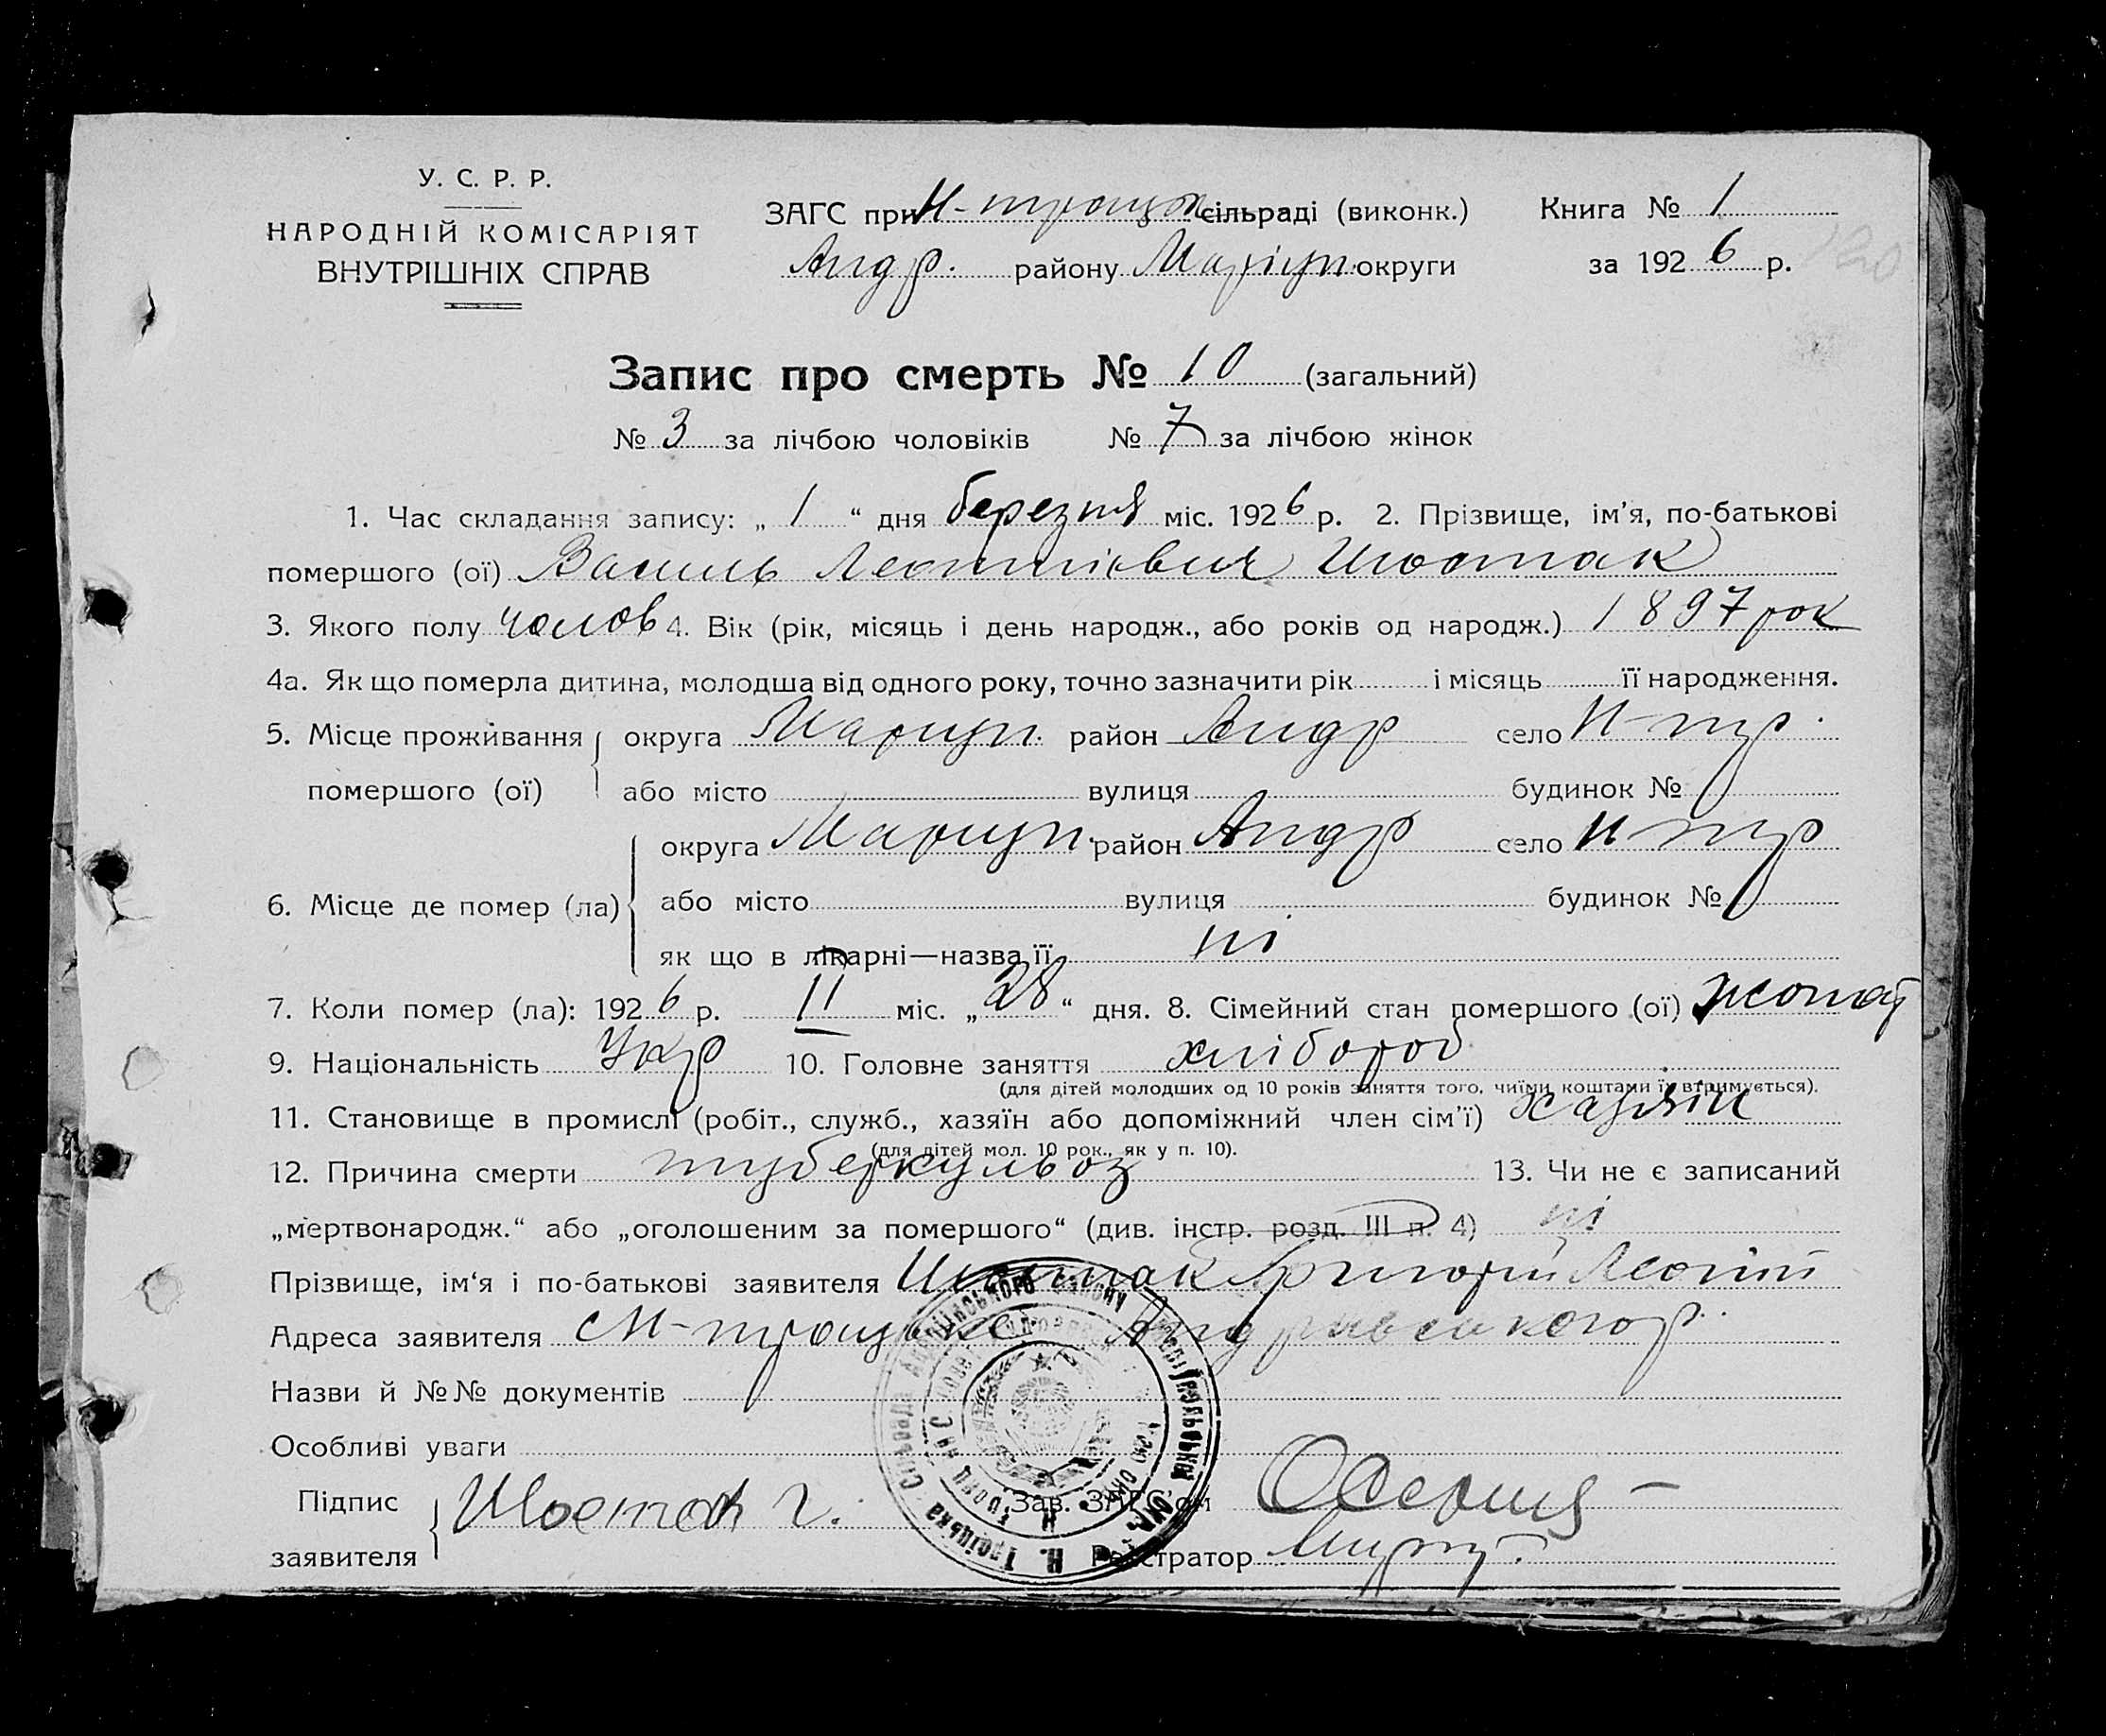 У. С. Р. Р.
НАРОДНІЙ КОМІСАРІЯТ
ВНУТРІШНІХ СПРАВ
ЗАГС при Н-троицк сільраді (виконк.)
Андр. району Маріуп. округи
Книга № 1
за 1926 р.
120
Запис про смерть № 10 (загальний)
№ 3 за лічбою чоловіків № 7 за лічбою жінок
1. Час складання запису: „ 1 “ дня березня міс. 1926 р. 2. Прізвище, ім’я, по-батькові
помершого (ої) Василь Леонтіевич Шостак
3. Якого полу чолов 4. Вік (рік, місяць і день народж., або років од народж.) 1897 рок
4а. Як що померла дитина, молодша від одного року, точно зазначити рік і місяць її народження.
5. Місце проживання помершого (ої) округа Мариуп. район Андр село Н-тр.
або місто вулиця будинок №
6. Місце де помер (ла) округа Мариуп. район Андр село Н-тр
або місто вулиця будинок №
як що в лікарні—назва її ні
7. Коли помер (ла): 1926 р. II міс. „28“ дня. 8. Сімейний стан помершого (ої) жонат
9. Національність Укр 10. Головне заняття хлібороб
(для дітей молодших од 10 років заняття того, чиїми коштами їх втримується).
11. Становище в промислі (робіт., служб., хазяїн або допоміжний член сім’ї) хазяін
(для дітей мол. 10 рок., як у п. 10).
12. Причина смерти туберкульоз 13. Чи не є записаний
„мертвонародж.“ або „оголошеним за помершого“ (див. інстр. розд. III п. 4) ні
Прізвище, ім‘я і по-батькові заявителя Шостак Григорій Леонтій
Адреса заявителя
Назви й №№ документів
Особливі уваги
Підпис заявителя Шостак Г. Зав. ЗАГС’ом
Реєстратор
Н. Троїцька Сільрада Андріївського району Маріупольської окр.